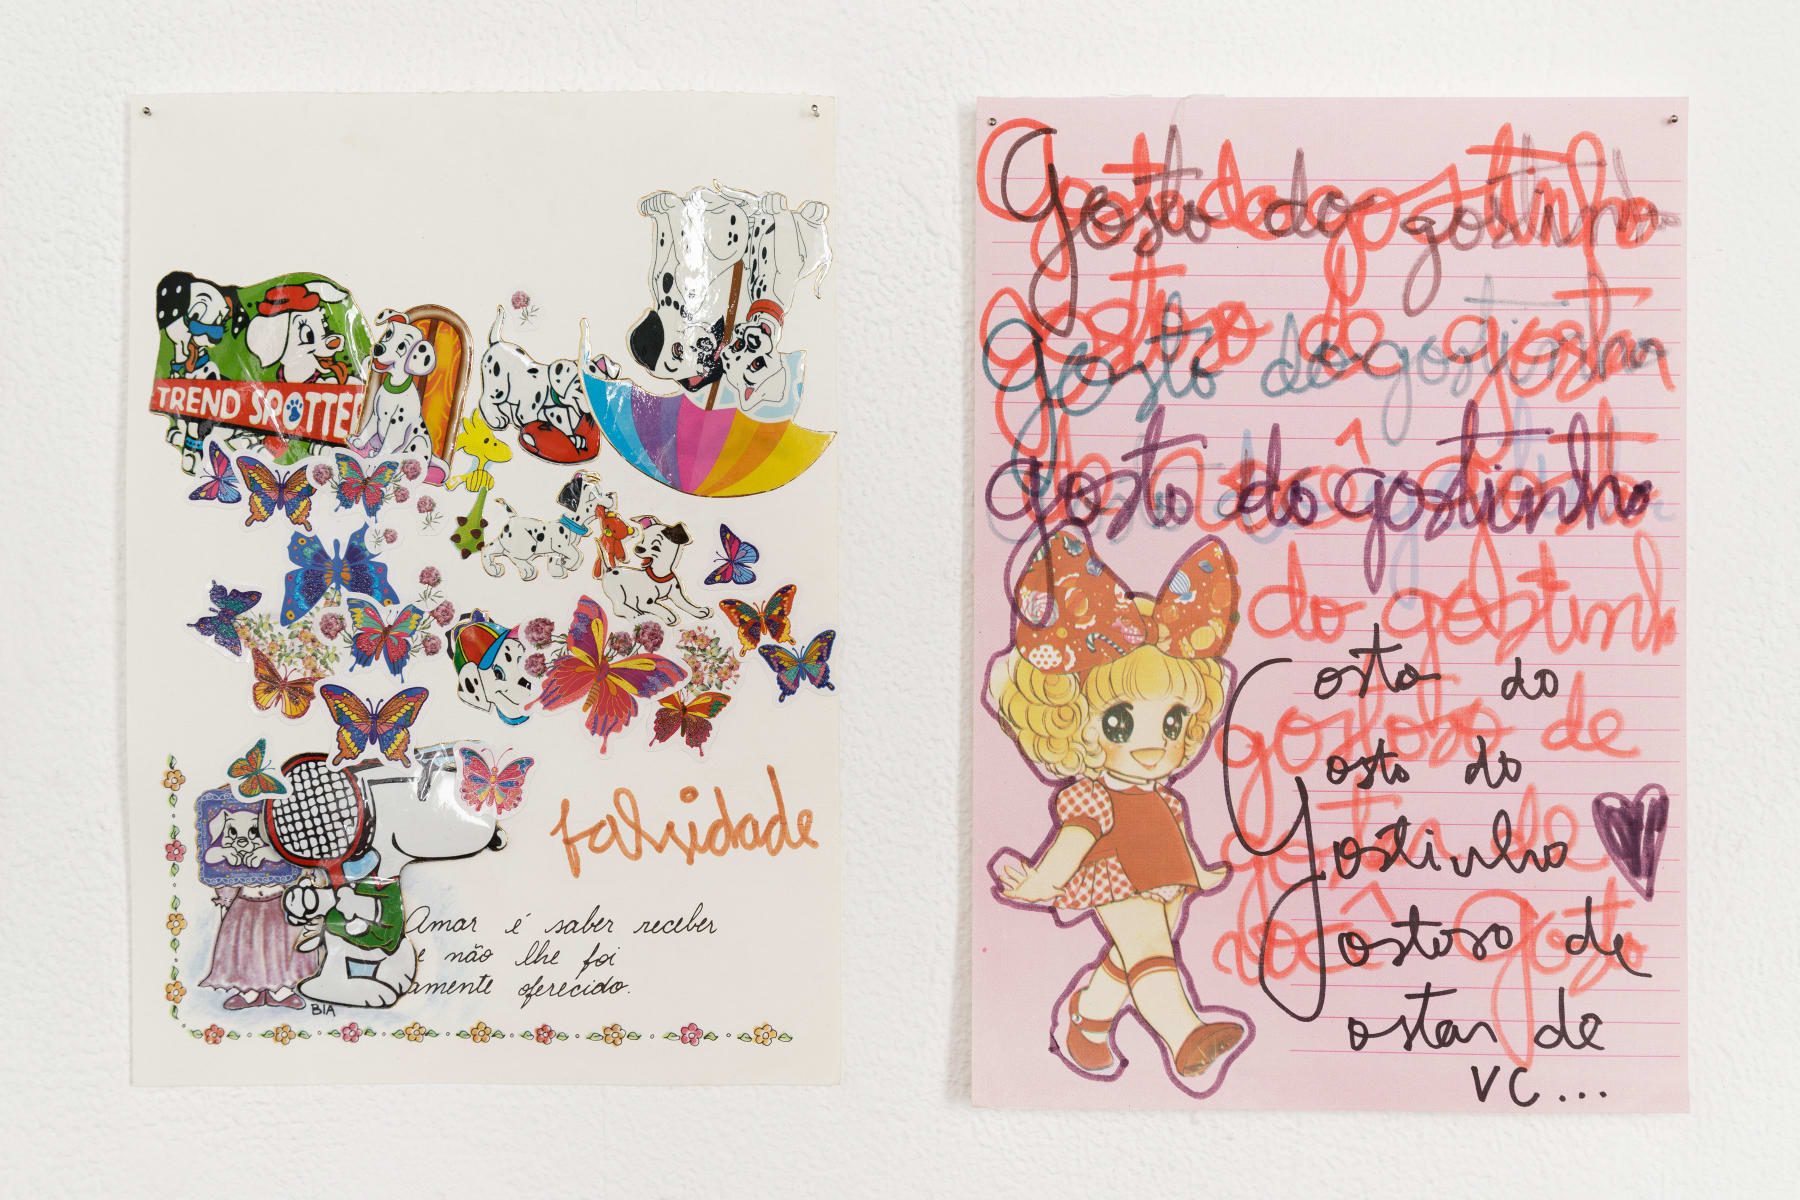 TREND SPOTTER
falsidade
Amar é saber receber
e não lhe foi
amente oferecido.
BIA
Gosto do gostinho
gostoso de gostar
gosto do gostinho
gosto do gostinho
do gostinh
Gosto do
gostoso de
Gosto do
Gostinho
gostar de
Gostoso de
você Gosto
ostar de
vc...